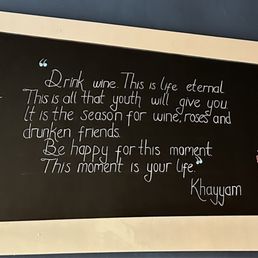 "Drink wine. This is life eternal
This is all that youth will give you
It is the season for wine, roses and
drunken friends.
Be happy for this moment
This moment is your life."
Khayyam